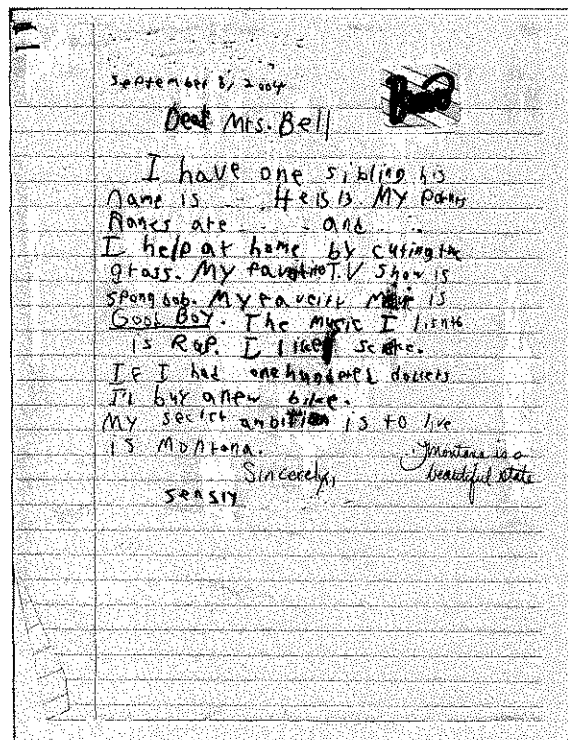 September 8, 2004
Dear Mrs. Bell
I have one sibling his
name is He is 15 My parnts
Names are and
I help at home by cuting the
grass. My T.V Show is
Spong bob. My faveirt is
Good Boy. The music I lisnto
is Rap. I like science.
If I had one hundered dollers
I'l buy a new bike.
My secirt ambition is to live
is Montana.
Montana is a
beautiful state
Sincerely,